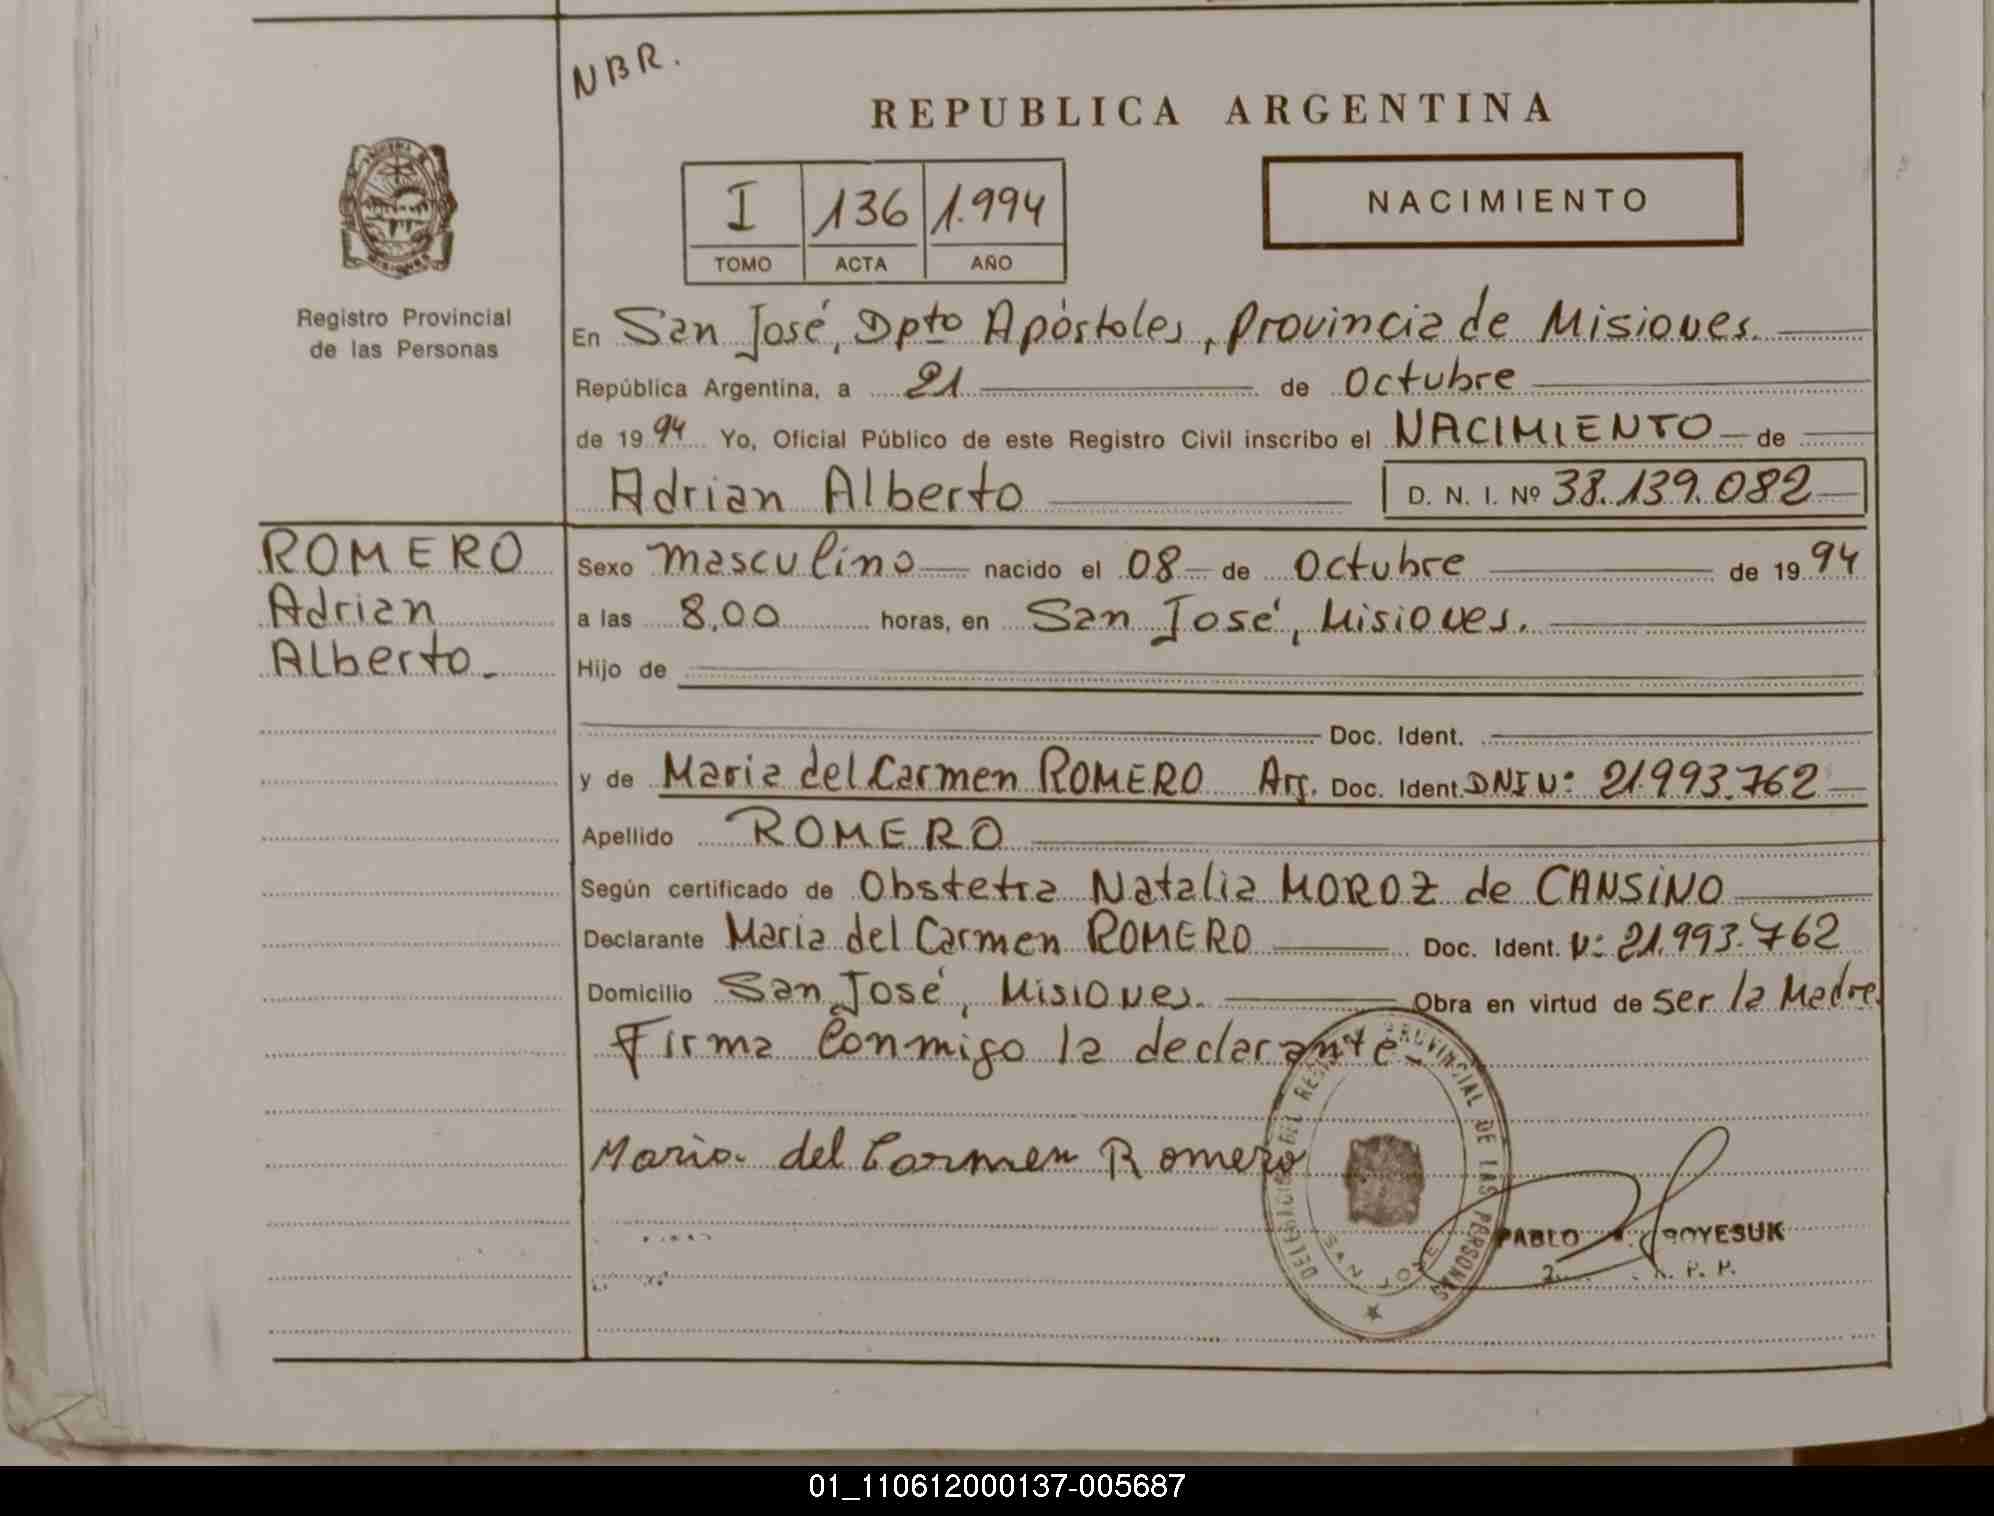 NBR.
REPUBLICA ARGENTINA
NACIMIENTO
I 136 1.994
TOMO ACTA AÑO
Registro Provincial
de las Personas
En San José, Dpto Apóstoles, Provincia de Misiones.
República Argentina, a 21 de Octubre
de 1994 Yo, Oficial Público de este Registro Civil inscribo el NACIMIENTO de
Adrian Alberto D. N. I. Nº 38.139.082
ROMERO
Adrian
Alberto.
Sexo masculino nacido el 08 de Octubre de 1994
a las 8,00 horas, en San José, Misiones.
Hijo de
Doc. Ident.
y de Maria del Carmen ROMERO Arg. Doc. Ident. DNI Nº 21.993.762
Apellido ROMERO
Según certificado de Obstetra Natalia MOROZ de CANSINO
Declarante Maria del Carmen ROMERO Doc. Ident. Nº 21.993.762
Domicilio San José, Misiones. Obra en virtud de ser la Madre.
Firma Conmigo la declarante
Maria del Carmen Romero
DELEGACION DEL REGISTRO PROVINCIAL DE LAS PERSONAS
SAN JOSE
PABLO
01_110612000137-005687